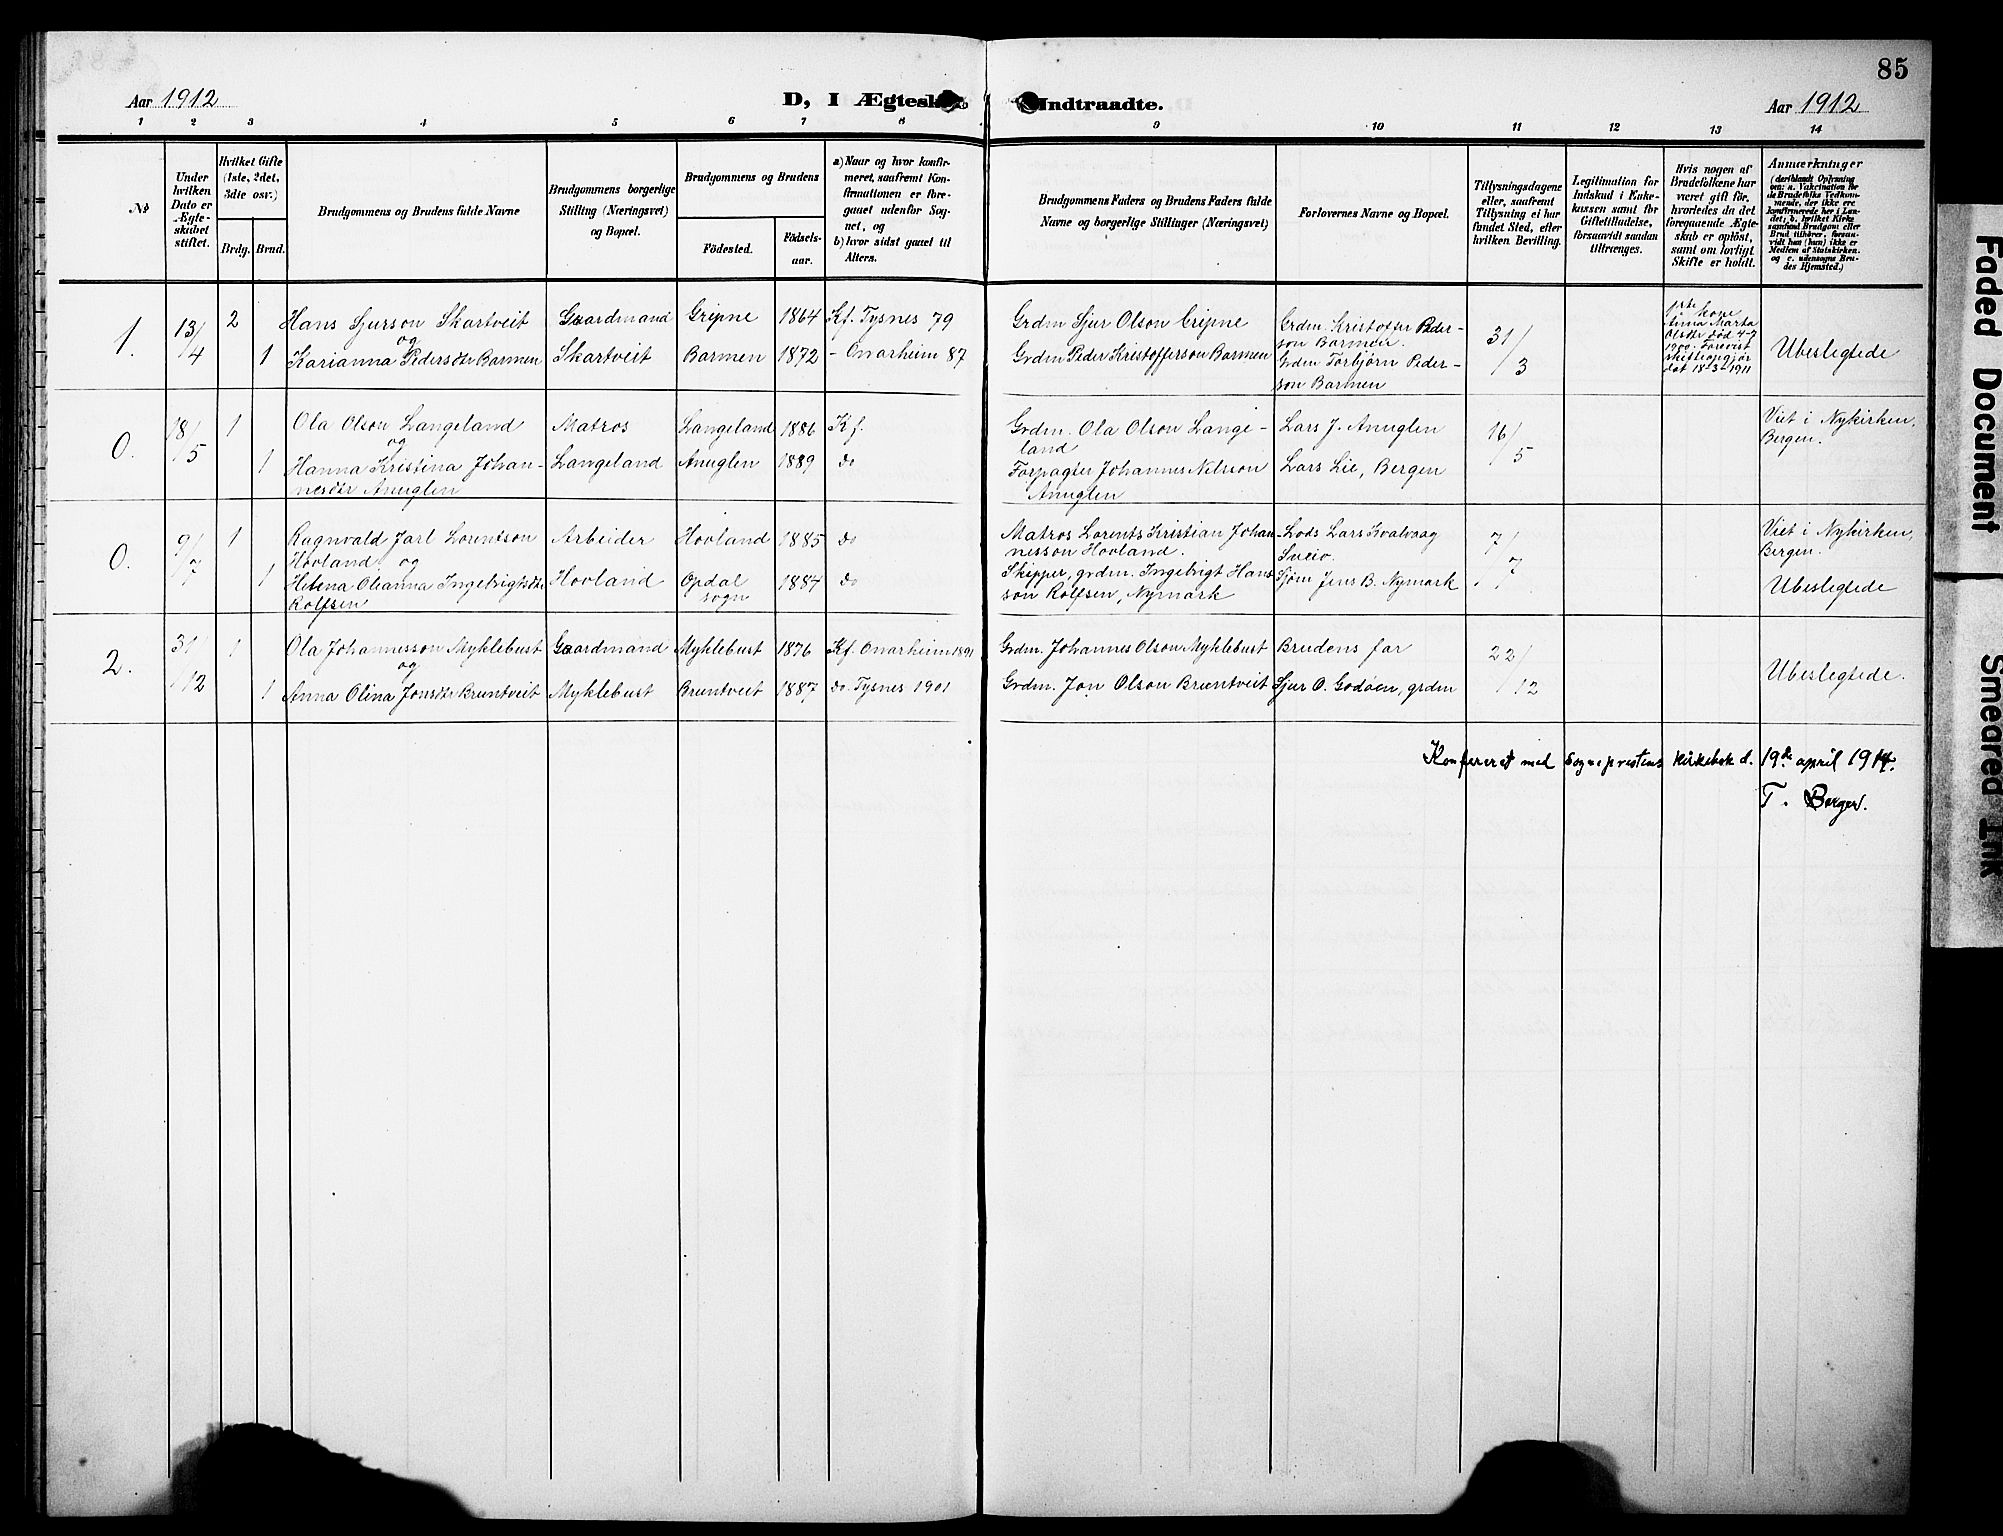 85
Aar 1912
D, I Ægtesk
Indtraadte.
Aar 1912
1 2 3 4 5 6 7 8 9 10 11 12 13 14
№
Under hvilken Dato er Ægteskabet stiftet.
Hvilket Gifte (1ste, 2det, 3die osv.)
Brdg. Brud.
Brudgommens og Brudens fulde Navne
Brudgommens borgerlige Stilling (Næringsvei) og Bopæl.
Brudgommens og Brudens
Födested.
Födselsaar.
a) Naar og hvor konfirmeret, saafremt Konfirmationen er foregaaet udenfor Sognet, og
b) hvor sidst gaaet til Alters.
Brudgommens Faders og Brudens Faders fulde Navne og borgerlige Stillinger (Næringsvei)
Forlovernes Navne og Bopæl.
Tillysningsdagene eller, saafremt Tillysning ei har fundet Sted, efter hvilken Bevilling.
Legitimation for Indskud i Enkekassen samt för Giftetilladelse, forsaavidt saadan tiltrænges.
Hvis nogen af Brudefolkene har været gift för, hvorledes da det foregaaende Ægteskab er oplöst, samt om lovligt Skifte er holdt.
Anmærkninger
(deriblandt Oplysning om: a. Vakcination for de Brudefolks Vedkommende, der ikke ere konfirmerede her i Landet; b. hvilket Kirkesamfund Brudgom eller Brud tilhörer, forsaavidt han (hun) ikke er Medlem af Statskirken, og c. udensogns Brudes Hjemsted.)
1.
13/4
2
Hans Sjurson Skartveit
Gaardmand
Gripne
1864
Kf. Tysnes 79
Grdm Sjur Olson Gripne
Grdm. Kristoffer Pederson Barmen.
31/3
1ste kone Anna Marta Olsdtr död 4-7 1900. Forevist skifteopgjör dat 18-3-1911
Ubeslegtede
og
1
Karianna Pedersdtr Barmen
Skartveit
Barmen
1872
- Onarheim 87
Grdm Peder Kristofferson Barmen
Grdm Torbjörn Pederson Barmen
0.
18/5
1
Ola Olson Langeland
Matros
Langeland
1886
Kf.
Grdm. Ola Olson Langeland
Lars J. Anuglen
16/5
Viet i Nykirken, Bergen.
og
1
Hanna Kristina Johannesdtr Anuglen
Langeland
Anuglen
1889
do
Forpagter Johannes Nilsson Anuglen
Lars Lie, Bergen
0.
9/7
1
Ragnvald Jarl Lorentson Hovland og
Arbeider
Hovland
1885
do
Matros Lorents Kristian Johannesson Hovland.
Lods Lars Kvalvaag Sveio.
7/7
Viet i Nykirken, Bergen.
1
Helena Oleanna Ingebrigtsdtr Rolfsen
Hovland
Opdal sogn
1884
do
Skipper, grdm. Ingebrigt Hansson Rolfsen, Nymark
Sjöm Jens B. Nymark
Ubeslegtede
2.
31/12
1
Ola Johannesson Myklebust
Gaardmand
Myklebust
1876
Kf. Onarheim 1891
Grdm. Johannes Olson Myklebust
Brudens far
22/12
Ubeslegtede.
og
1
Anna Olina Jonsdtr Bruntveit
Myklebust
Bruntveit
1887
do. Tysnes 1901
Grdm. Jon Olson Bruntveit
Sjur O. Godöen, grdm
Konfereret med sogneprestens kirkebok d. 19de april 1914.
T. Berger.
Faded Document
Smeared Ink